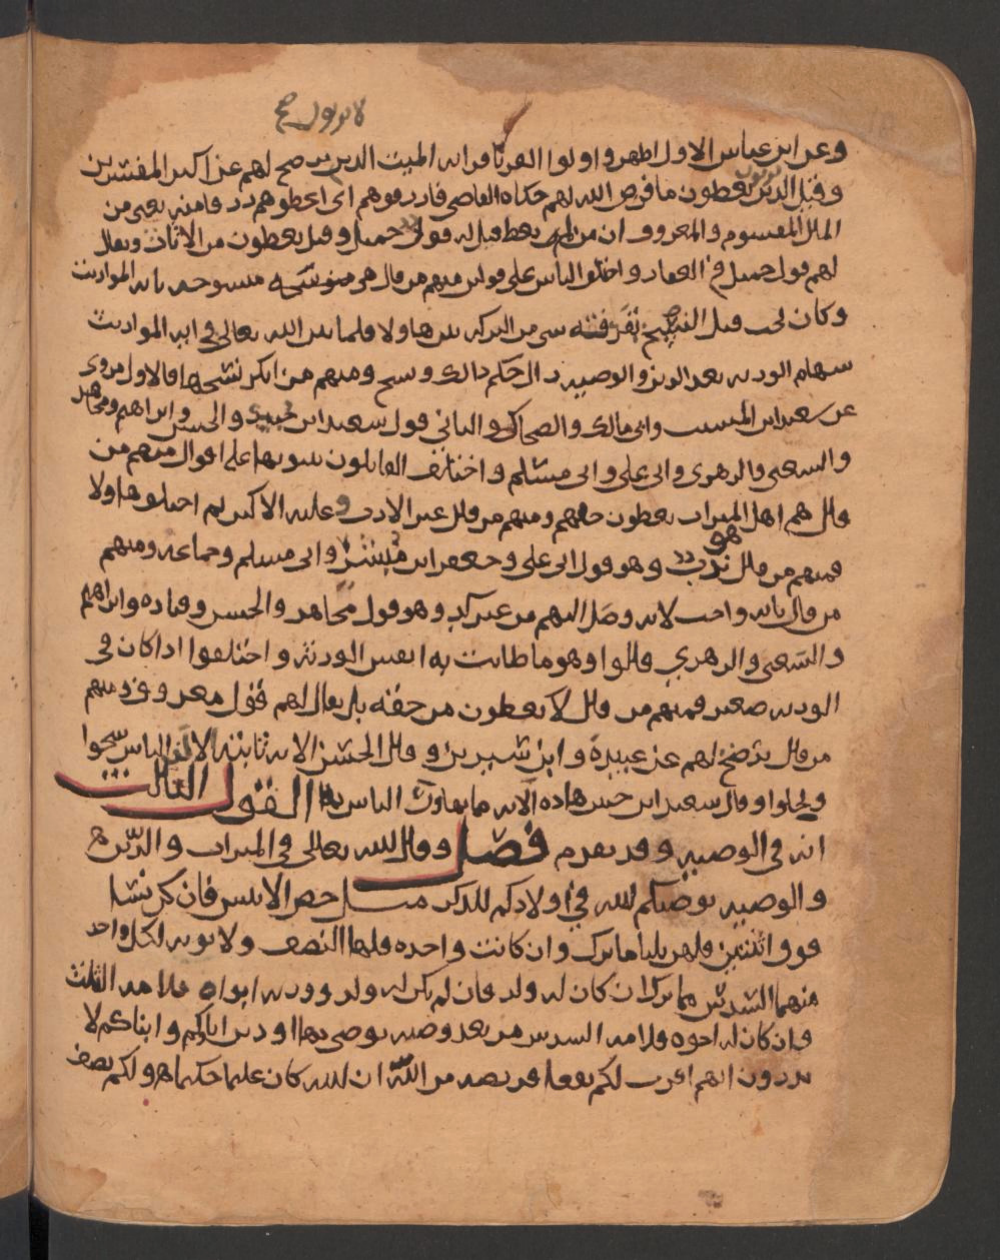 لا يرثون صح
وعن ابن عباس الاول اظهر واولوا القربا قرابه الميت الذين يرضح لهم عن اكثر المفسرين
وقيل الذين يعطون ما فرض الله لهم حكاه القاضي فارزقوهم اي اعطوهم منه يعني من
المال المقسوم والمعروف ان من لم يعط قيل له قول جميل وقيل يعطون من الاثاث ويقال
لهم قول جميل في العقار واختلف الناس على قولين منهم من قال هي منسوخه بايه المواريث
وكان يجب قبل النسخ من التركه بين هاولا فلما بين الله تعالى في ايه المواريث
سهام الورثه بعد الدين والوصيه زال حكم ذالك ونسخ ومنهم من انكر نسخها فالاول مروي
عن سعيد ابن المسيب وابي مالك والضحاك والثاني قول سعيد ابن جبير والحسن وابراهيم ومجاهد
والشعبي والزهري وابي علي وابي مسلم واختلف القايلون بثبوتها على اقوال منهم من
قال هم اهل الميراث يعطون حقهم ومنهم من قال غير الارث وعليه الاكثر ثم اختلفوا هاولا
فمنهم من قال هو ندب وهو قول ابي علي وجعفر ابن مبشر وابي مسلم وجماعه ومنهم
من قال بانه واجب لانه وصل اليهم من غير كد وهو قول مجاهد والحسن وقتاده وابراهيم
والشعبي والزهري قالوا وهو ما طابت به انفس الورثه واختلفوا اذا كان في
الورثه صغير فمنهم من قال لا يعطون من حقه بل يقال لهم قول معروف ومنهم
من قال يرضخ لهم عن عبيدة وابن سيرين وقال الحسن الايه ثابته لاكن الناس شحوا
وبخلوا وقال سعيد ابن جبير هاذه الايه مما يهاون الناس بها القول الثالث
انه في الوصيه وقد تقدم فصل وقال الله تعالى في الميراث والدين
والوصيه يوصيكم الله في اولادكم للذكر مثل حظ الانثيين فان كن نسا
فوق اثنتين فلهن ثلثا ما ترك وان كانت واحده فلها النصف ولابويه لكل واحد
منهما السدس مما ترك ان كان له ولد فان لم يكن له ولد وورثه ابواه فلامه الثلث
فان كان له اخوه فلامه السدس من بعد وصيه يوصي بها او دين اباوكم وابناكم لا
تدرون ايهم اقرب لكم نفعا فريضه من الله ان الله كان عليما حكيما ولكم نصف